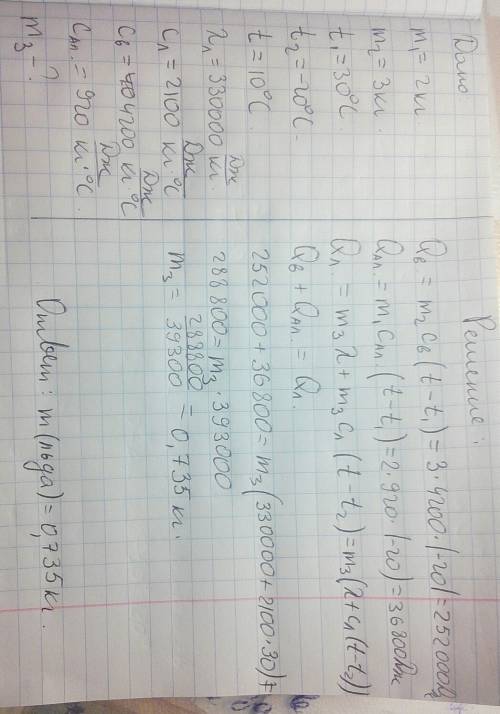 Дано
m₁ = 2 кг.
m₂ = 3 кг.
t₁ = 30°C.
t₂ = -20°C.
t = 10°C.
λл = 330000 Дж/кг.
Cл = 2100 Дж/кг·°C
Cв = 4200 Дж/кг·°C
Cал. = 920 Дж/кг·°C.
m₃ - ?
Решение:
Qв = m₂cв(t-t₁) = 3·4200·|-20| = 252000Дж
Qал. = m₁cал.(t-t₁) = 2·920·|-20| = 36800Дж
Qл. = m₃λ + m₃cл(t-t₂) = m₃(λ+cл(t-t₂))
Qв + Qал. = Qл.
252000 + 36800 = m₃(330000 + 2100·30)
288800 = m₃·393000
m₃ = 288800/39300 = 0,735 кг.
Ответ: m(льда) = 0,735 кг.